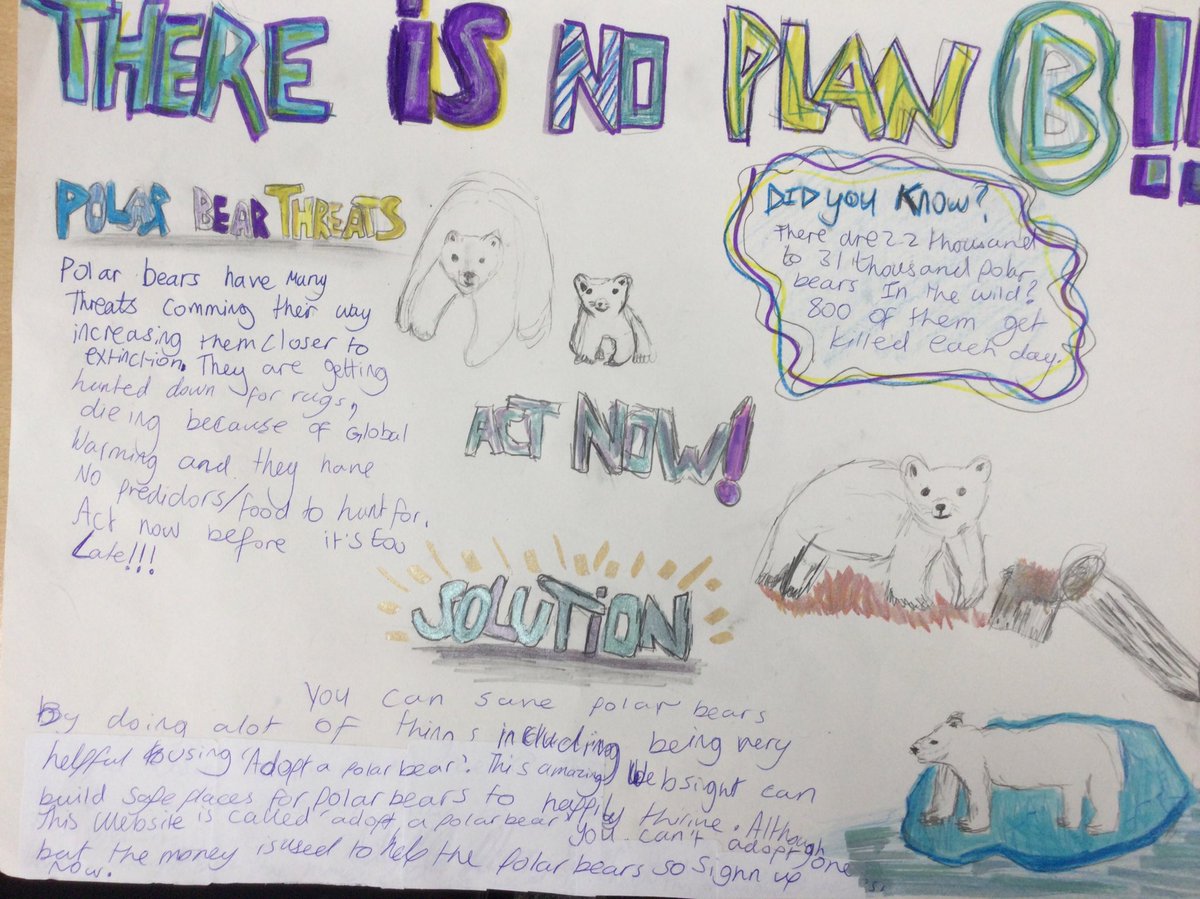 THERE iS NO PLAN B!!
POLAR BEAR THREATS
Polar bears have Many
Threats comming ther way
increasing them closer to
extinction. They are getting
hunted down for rugs,
dieing because of Global
Warming and they have
No predidors/food to hunt for.
Act now before it's too
Late!!!
DiD you Know?
There are 22 thousand
to 31 thousand polar
bears In the wild?
800 of them get
killed each day.
ACT NOW!
SOLUTiON
You can save polar bears
By doing alot of things including being very
helpful by using 'Adopt a polar bear'. This amazing Websight can
build safe places for polar bears to happily thrive. Although
This website is called adopt a polar bear you can't adopt one
but the money is used to help the polar bears so signn up
now.